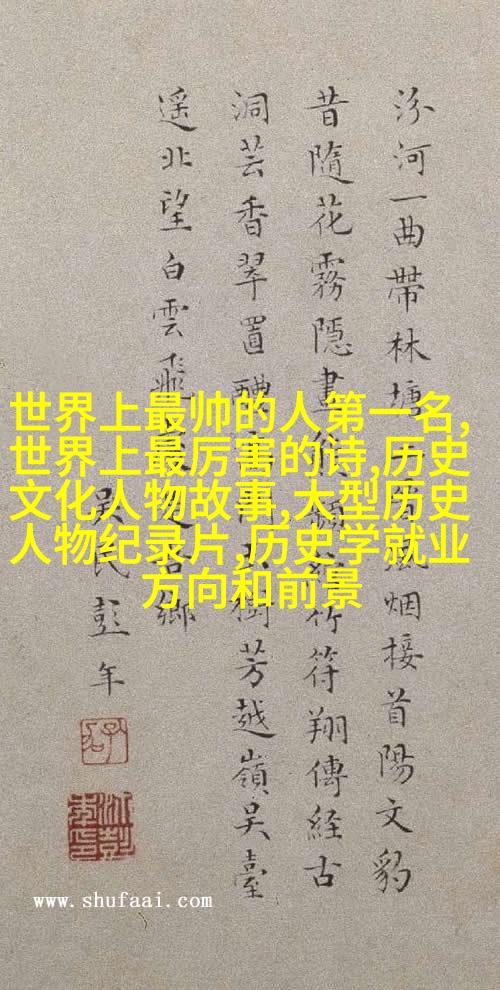 汾河一曲帶林塘烟接首陽文豹
昔隨花霧隱畫竹符翔傳經古
洞芸香翠置樹芳越嶺吴臺
遥北望白雲飛鄉
吴民彭年
世界上最帅的人第一名,
世界上最厉害的诗,历史
文化人物故事,大型历史
人物纪录片,历史学就业
方向和前景
www.shufaai.com